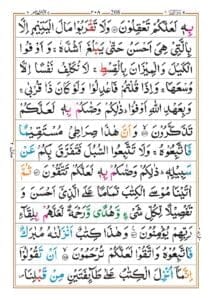 بِهٖ لَعَلَّكُمْ تَعْقِلُوْنَ ۝ وَلَا تَقْرَبُوْا مَالَ الْيَتِيْمِ اِلَّا
بِالَّتِيْ هِيَ اَحْسَنُ حَتّٰى يَبْلُغَ اَشُدَّهٗ ۚ وَاَوْفُوا
الْكَيْلَ وَالْمِيْزَانَ بِالْقِسْطِ ۚ لَا نُكَلِّفُ نَفْسًا اِلَّا
وُسْعَهَا ۚ وَاِذَا قُلْتُمْ فَاعْدِلُوْا وَلَوْ كَانَ ذَا قُرْبٰى ۚ
وَبِعَهْدِ اللّٰهِ اَوْفُوْا ؕ ذٰلِكُمْ وَصّٰىكُمْ بِهٖ لَعَلَّكُمْ
تَذَكَّرُوْنَ ۝ وَاَنَّ هٰذَا صِرَاطِيْ مُسْتَقِيْمًا
فَاتَّبِعُوْهُ ۚ وَلَا تَتَّبِعُوا السُّبُلَ فَتَفَرَّقَ بِكُمْ عَنْ
سَبِيْلِهٖ ؕ ذٰلِكُمْ وَصّٰىكُمْ بِهٖ لَعَلَّكُمْ تَتَّقُوْنَ ۝ ثُمَّ
اٰتَيْنَا مُوْسَى الْكِتٰبَ تَمَامًا عَلَى الَّذِيْٓ اَحْسَنَ وَ
تَفْصِيْلًا لِّكُلِّ شَيْءٍ وَّهُدًى وَّرَحْمَةً لَّعَلَّهُمْ بِلِقَآءِ
رَبِّهِمْ يُؤْمِنُوْنَ ۝ وَهٰذَا كِتٰبٌ اَنْزَلْنٰهُ مُبٰرَكٌ
فَاتَّبِعُوْهُ وَاتَّقُوْا لَعَلَّكُمْ تُرْحَمُوْنَ ۝ اَنْ تَقُوْلُوْٓا
اِنَّمَآ اُنْزِلَ الْكِتٰبُ عَلٰى طَآئِفَتَيْنِ مِنْ قَبْلِنَا